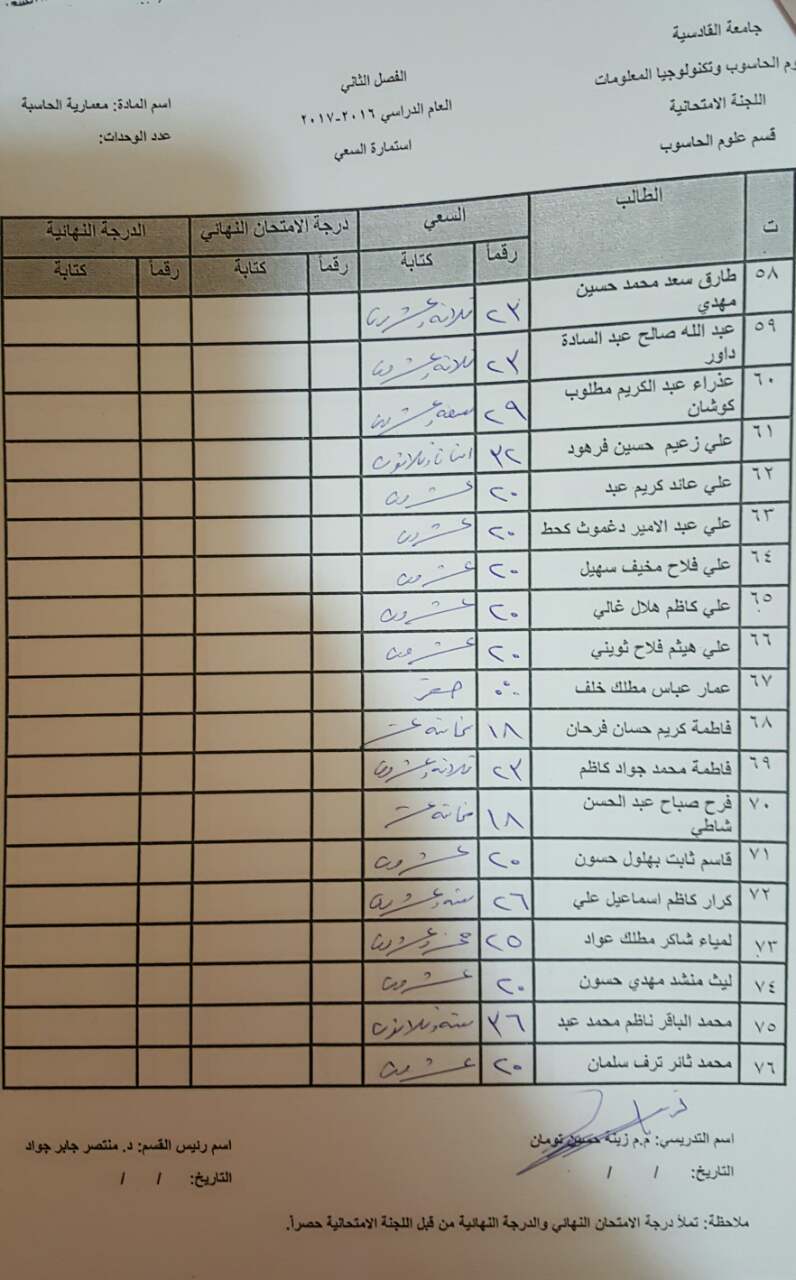 جامعة القادسية
وم الحاسوب وتكنولوجيا المعلومات
اللجنة الامتحانية
قسم علوم الحاسوب
الفصل الثاني
العام الدراسي ٢٠١٦-٢٠١٧
استمارة السعي
اسم المادة: معمارية الحاسبة
عدد الوحدات:
ت الطالب السعي درجة الامتحان النهائي الدرجة النهائية
رقماً كتابة رقماً كتابة رقماً كتابة
٥٨ طارق سعد محمد حسين مهدي ٢٣ ثلاثة وعشرون
٥٩ عبد الله صالح عبد السادة داور ٢٣ ثلاثة وعشرون
٦٠ عذراء عبد الكريم مطلوب كوشان ٢٩ تسعة وعشرون
٦١ علي زعيم حسين فرهود ٣٢ اثنان وثلاثون
٦٢ علي عائد كريم عبد ٢٠ عشرون
٦٣ علي عبد الامير دغموث كحط ٢٠ عشرون
٦٤ علي فلاح مخيف سهيل ٢٠ عشرون
٦٥ علي كاظم هلال غالي ٢٠ عشرون
٦٦ علي هيثم فلاح ثويني ٢٠ عشرون
٦٧ عمار عباس مطلك خلف صفر
٦٨ فاطمة كريم حسان فرحان ١٨ ثمانية عشر
٦٩ فاطمة محمد جواد كاظم ٢٣ ثلاثة وعشرون
٧٠ فرح صباح عبد الحسن شاطي ١٨ ثمانية عشر
٧١ قاسم ثابت بهلول حسون ٢٠ عشرون
٧٢ كرار كاظم اسماعيل علي ٢٦ ستة وعشرون
٧٣ لمياء شاكر مطلك عواد ٢٥ خمسة وعشرون
٧٤ ليث منشد مهدي حسون ٢٠ عشرون
٧٥ محمد الباقر ناظم محمد عبد ٣٦ ستة وثلاثون
٧٦ محمد ثائر ترف سلمان ٢٠ عشرون
اسم التدريسي: م.م زينة حسين تومان
التاريخ: / /
اسم رئيس القسم: د. منتصر جابر جواد
التاريخ: / /
ملاحظة: تملأ درجة الامتحان النهائي والدرجة النهائية من قبل اللجنة الامتحانية حصراً.